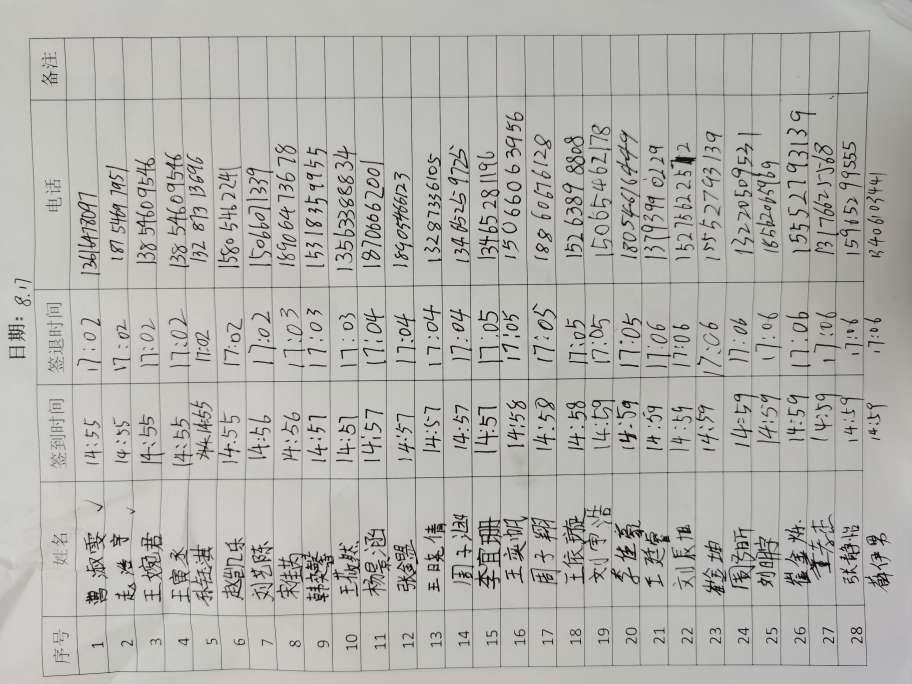 日期：8.17
序号 姓名 签到时间 签退时间 电话 备注
1 曹淑雯 ✓ 14:55 17:02 13614478097
2 赵浩宇 ✓ 14:55 17:02 18754697951
3 王婉君 14:55 17:02 13854609546
4 王寅丞 14:55 17:02 13854609546
5 张钰淇 14:55 17:02 13287313696
6 赵凯乐 14:55 17:02
7 刘艺陈 14:56 17:02 15066071339
8 宋佳灼 14:56 17:03 18906473678
9 韩奕馨 14:57 17:03 15318359955
10 王燚然 14:57 17:03 13563388834
11 杨景涵 14:57 17:04 18706662001
12 张鑫盟 14:57 17:04 18905466623
13 王晓倩 14:57 17:04 13287336105
14 周子涵 14:57 17:04 13465259725
15 李宜珊 14:57 17:05 13465281196
16 王奕帆 14:58 17:05 15066063956
17 周子翔 14:58 17:05 18860676128
18 王依璇 14:58 17:05 15263898808
19 刘帝浩 14:59 17:05 15065462178
20 14:59 17:05 18054616449
21 王廷睿 14:59 17:06 13793990229
22 刘辰旭 14:59 17:06
23 14:59 17:06 15552793139
24 周汐昕 14:59 17:06 13220509521
25 刘明宇 14:59 17:06 18562069969
26 崔金烁 14:59 17:06 15552793139
27 14:59 17:06 13176625568
28 张静怡 14:59 17:06 15965299555
薛伊男 14:59 17:06 13406103441